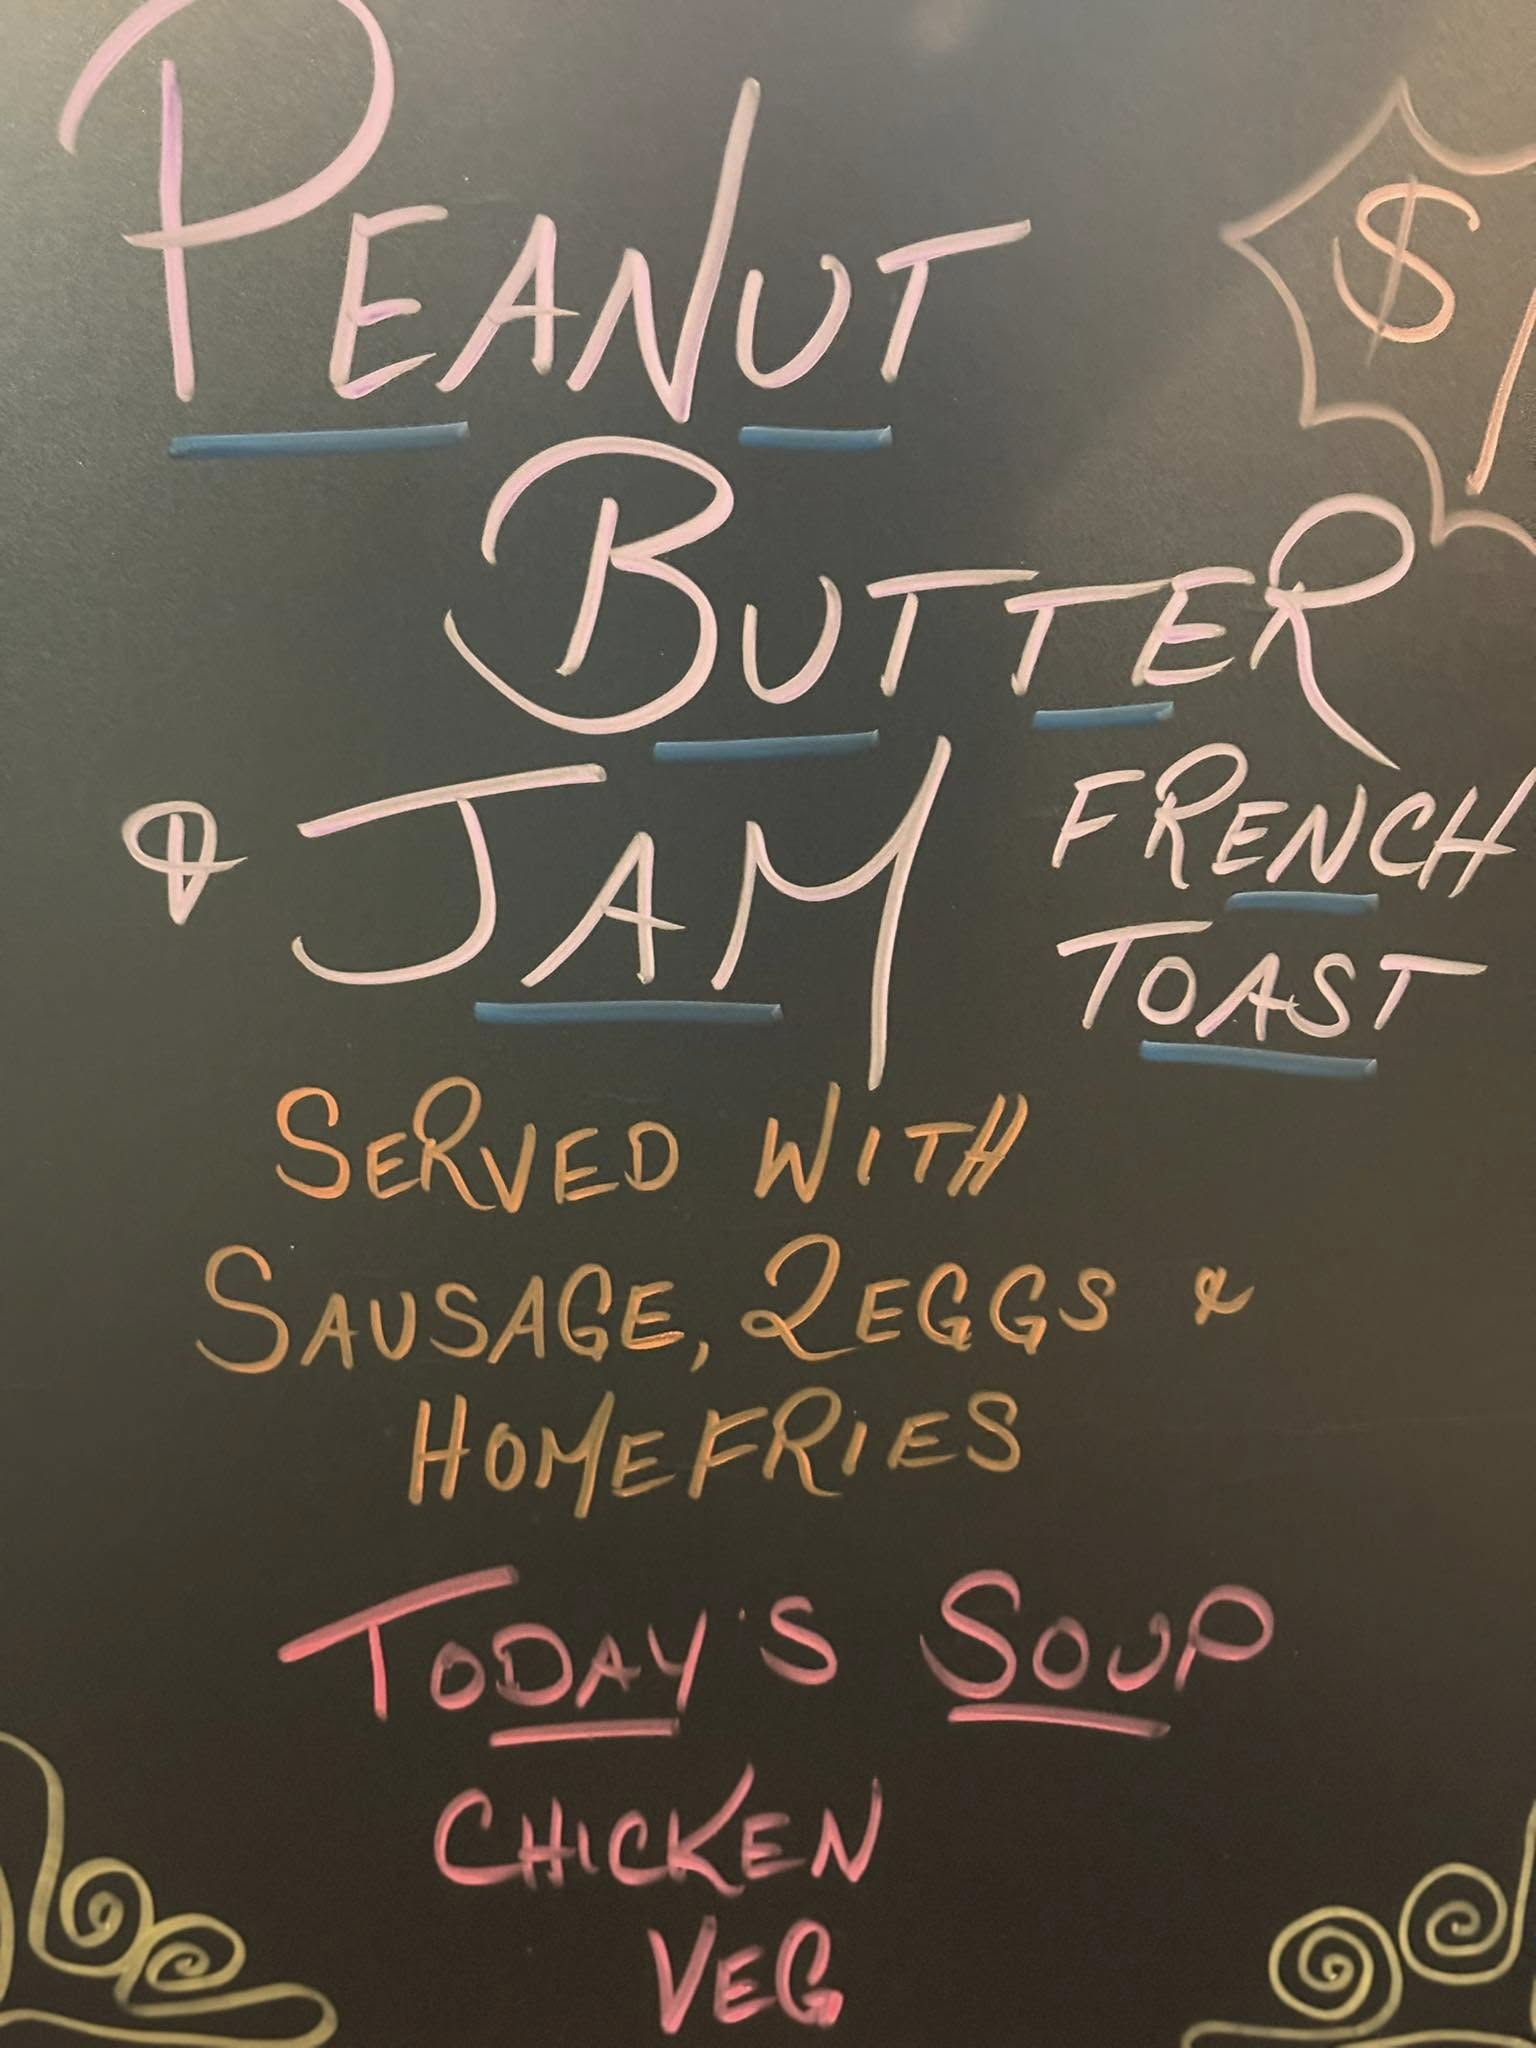 PEANUT
$1
BUTTER
& JAM FRENCH
TOAST
SERVED WITH
SAUSAGE, 2 EGGS &
HOMEFRIES
TODAY'S SOUP
CHICKEN
VEG